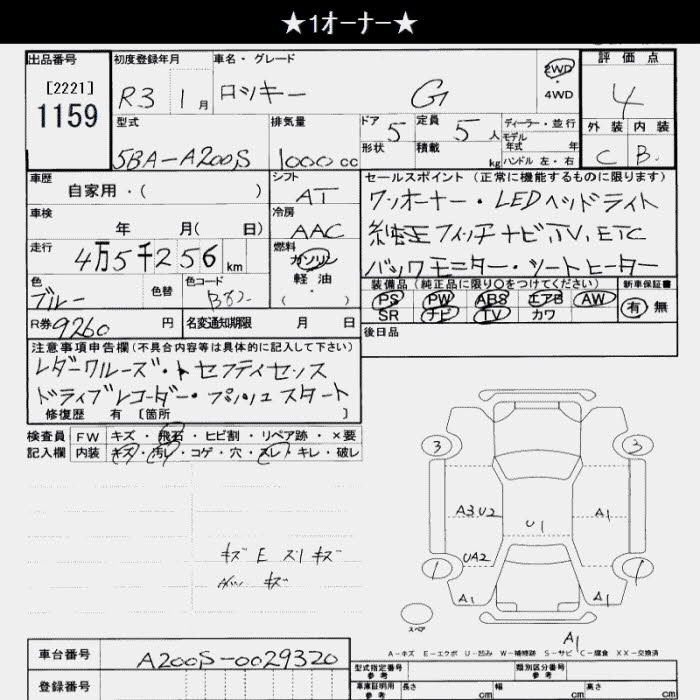 ★1オーナー★
出品番号 初度登録年月 車名・グレード 2WD 評価点
[2221] R3 1月 ロッキー G ・ 4
1159 4WD
型式 排気量 ドア 5 定員 5人 ディーラー・並行 外装 内装
モデル年式 年
5BA-A200S 1000cc 形状 積載 kg ハンドル 左・右 C B
車歴 シフト セールスポイント (正常に機能するものに限ります)
自家用・( ) AT ワンオーナー・LEDヘッドライト
車検 冷房 純正フィッチナビ,TV,ETC
年 月( 日) AAC バックモニター・シートヒーター
走行 燃料
4万5千256km ガソリン 装備品(純正品に限り○をつけてください) 新車保証書
色 色替 色コード 軽油 PS PW ABS エアB AW 有 無
ブルー B82 ・( ) SR ナビ TV カワ
R券 9260 円 名変通知期限 月 日 後日品
注意事項申告欄(不具合内容等は具体的に記入して下さい)
レダークルーズ・トセフティセンス
ドライブレコーダー・プッシュスタート
修復歴 有 〔箇所 〕
検査員 FW キズ・飛石・ヒビ割・リペア跡・×要
記入欄 内装 キズ・汚レ・コゲ・穴・スレ・キレ・破レ
3 3
A3 U2 A1
U1
キズ E スリキズ UA2
キズ 1 1
A1 A1
スペア A1
A-キズ E-エクボ U-凹み W-補修跡 S-サビ C-腐食 XX-交換済
車台番号 A200S-0029320 型式指定番号 参考 類別区分番号 参考
登録番号 車庫証明用 参考 長さ cm 幅 cm 高さ cm